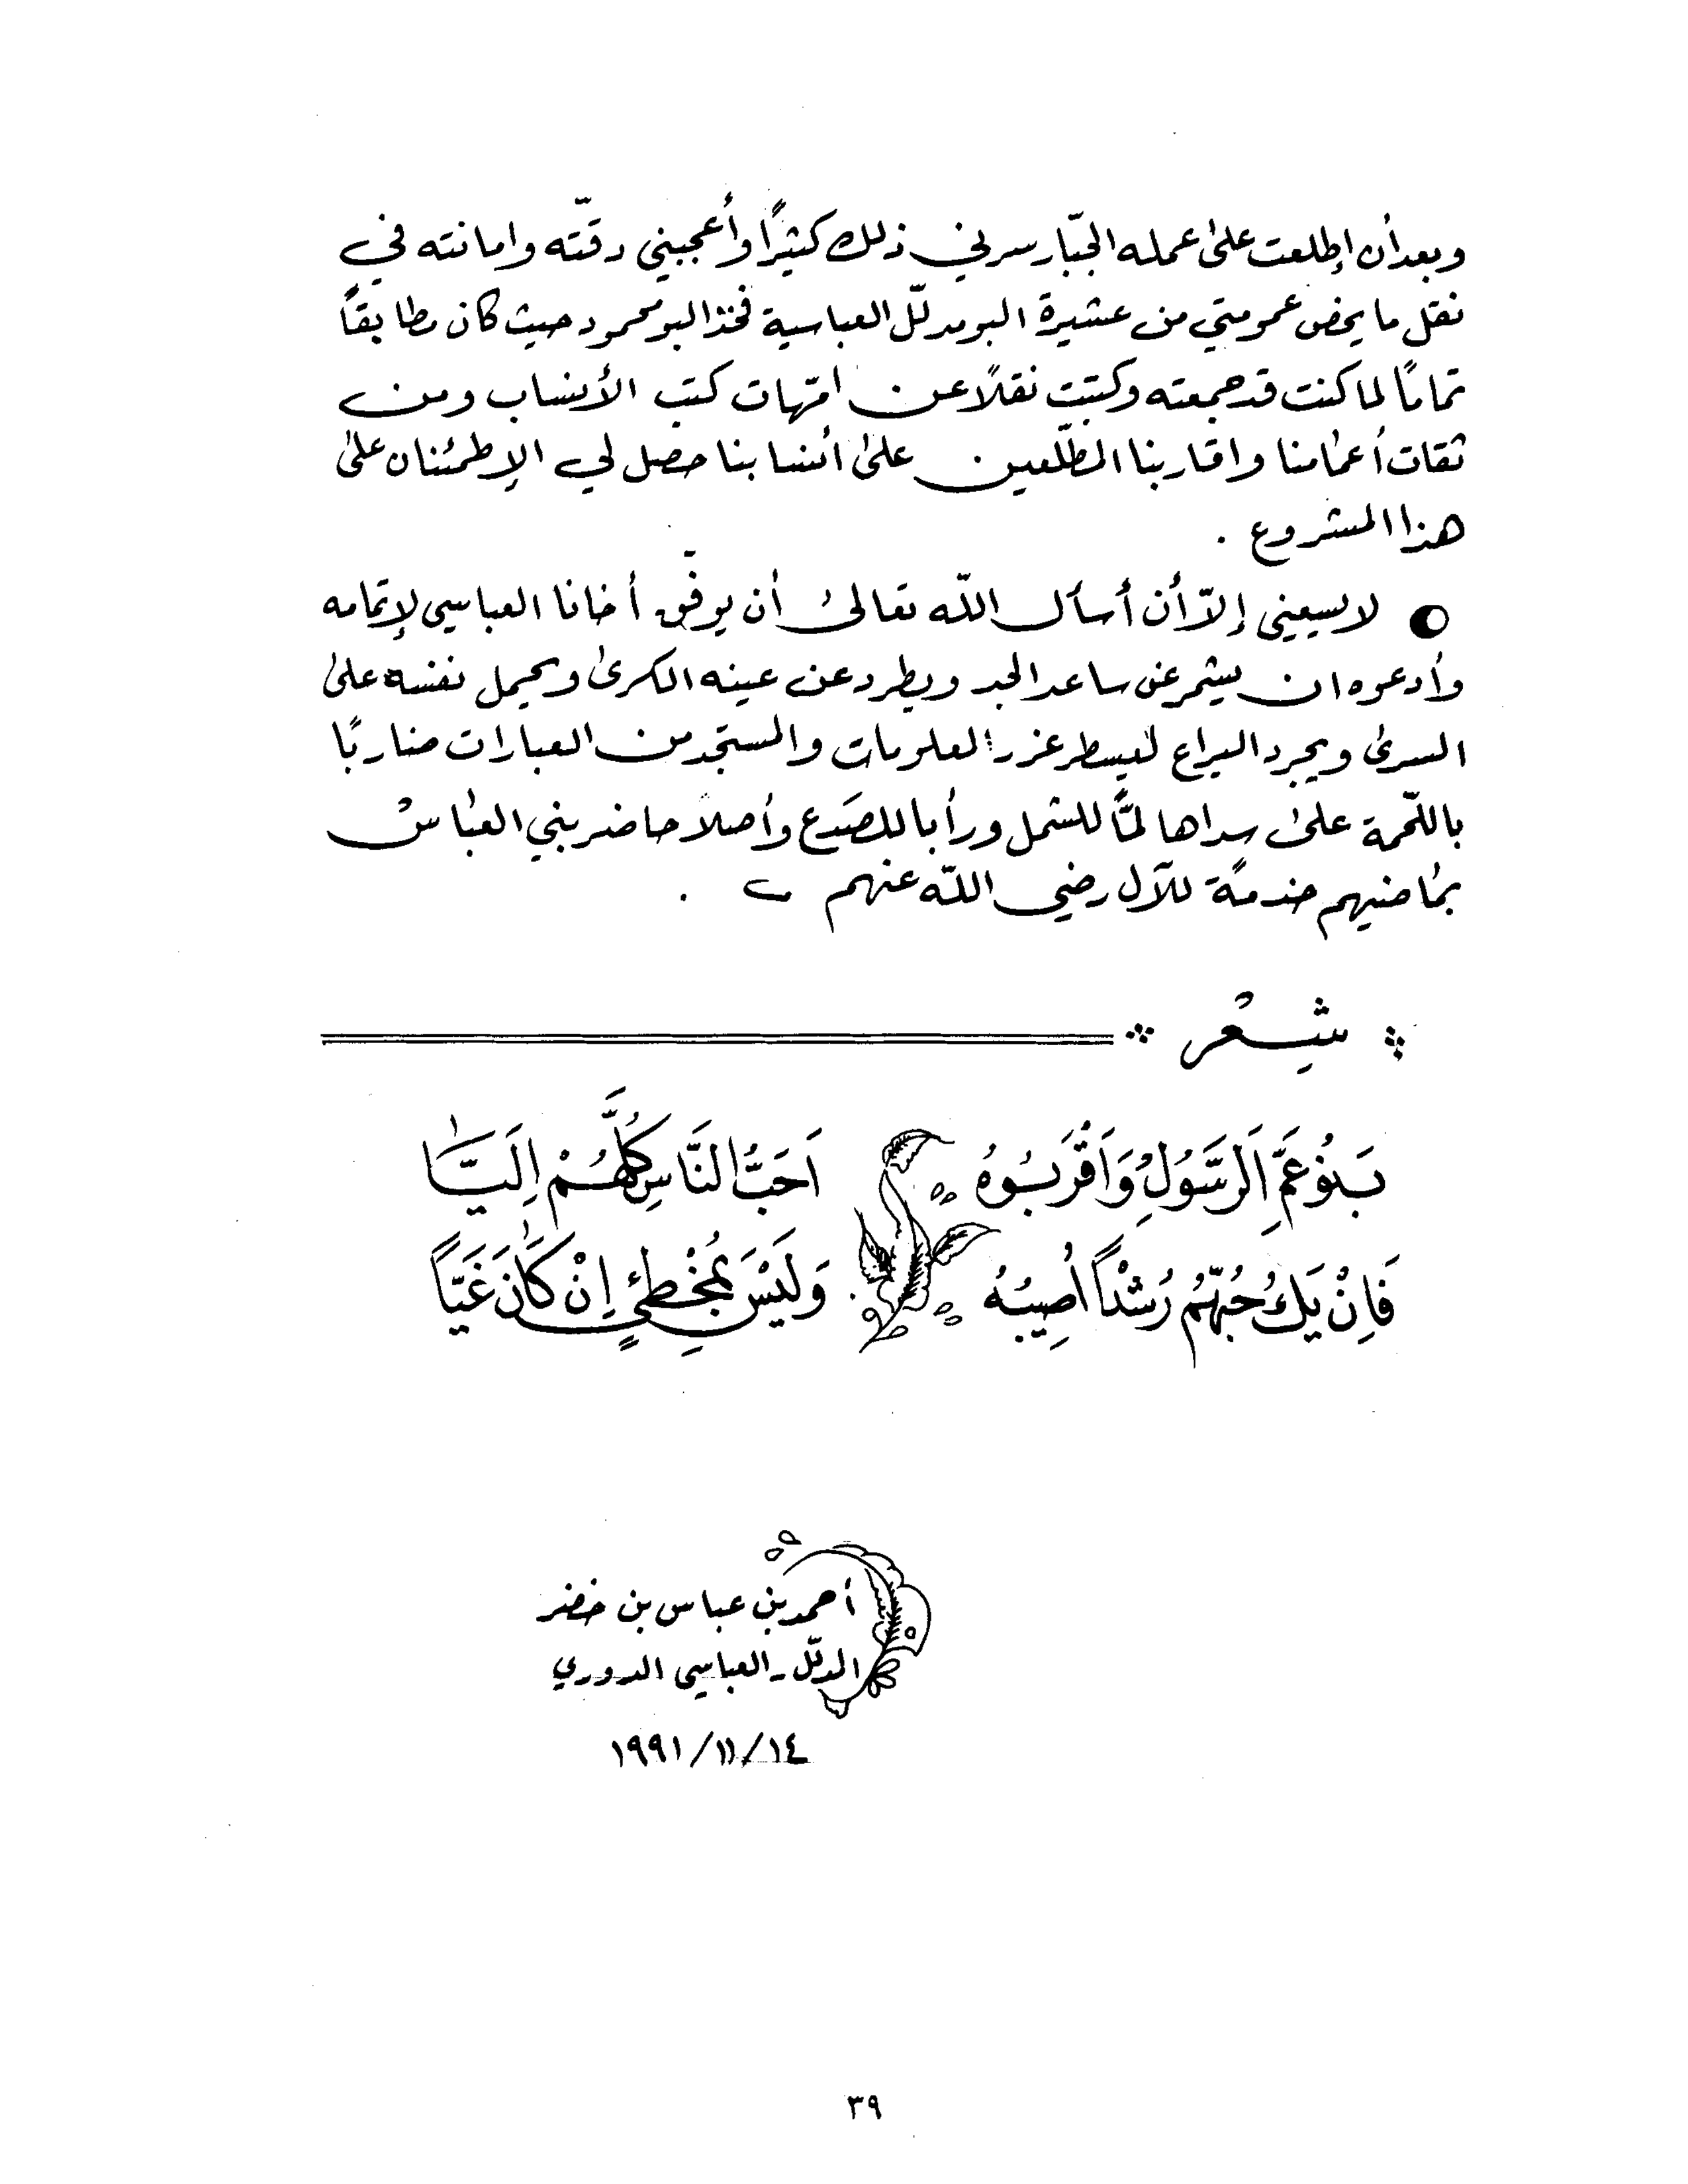 وبعد أن إطلعت على عمله الجبّار سرني ذلك كثيرًا وأعجبني دقتّه وامانته في
نقل ما يخص عمومتي من عشيرة البو مدلّل العباسية فخذ البو محمود حيث كان مطابقاً
تمامًا لما كنت قد جمعته وكتبت نقلاً عن امّهات كتب الأنساب ومن
ثقات أعمامنا واقاربنا المطلّعين على انسابنا حصل لي الإطمئنان على
هذا المشروع .
لا يسعني إلاّ أن أسأل اللّه تعالى أن يوفّق أخانا العباسي لإتمامه
وأدعوه ان يشمر عن ساعد الجد ويطرد عن عينه الكرى ويحمل نفسه على
السرى ويجرد اليراع ليسطر غزر المعلومات والمستجد من العبارات ضاربًا
باللّحمة على سداها لمًّا للشمل ورأبا للصَدع وأصلا حاضر بني العباس
بماضيهم خدمةً للآل رضي اللّه عنهم .
شِعْر
بَنُو عَمِّ اَلرَّسُولِ وَاَقْرَبُوهُ اَحَبُّ النَّاسِ كُلُّهُمْ اِلَيَّا
فَاِنْ يَكُ حُبُّهُمْ رُشْداً اُصِيبُهُ وَلَيْسَ بِمُخْطِئٍ اِنْ كَانَ غَيَّاً
أحمد بن عباس بن خضر
المدلّل - العباسي الدوري
١٤/١١/١٩٩١
٣٩